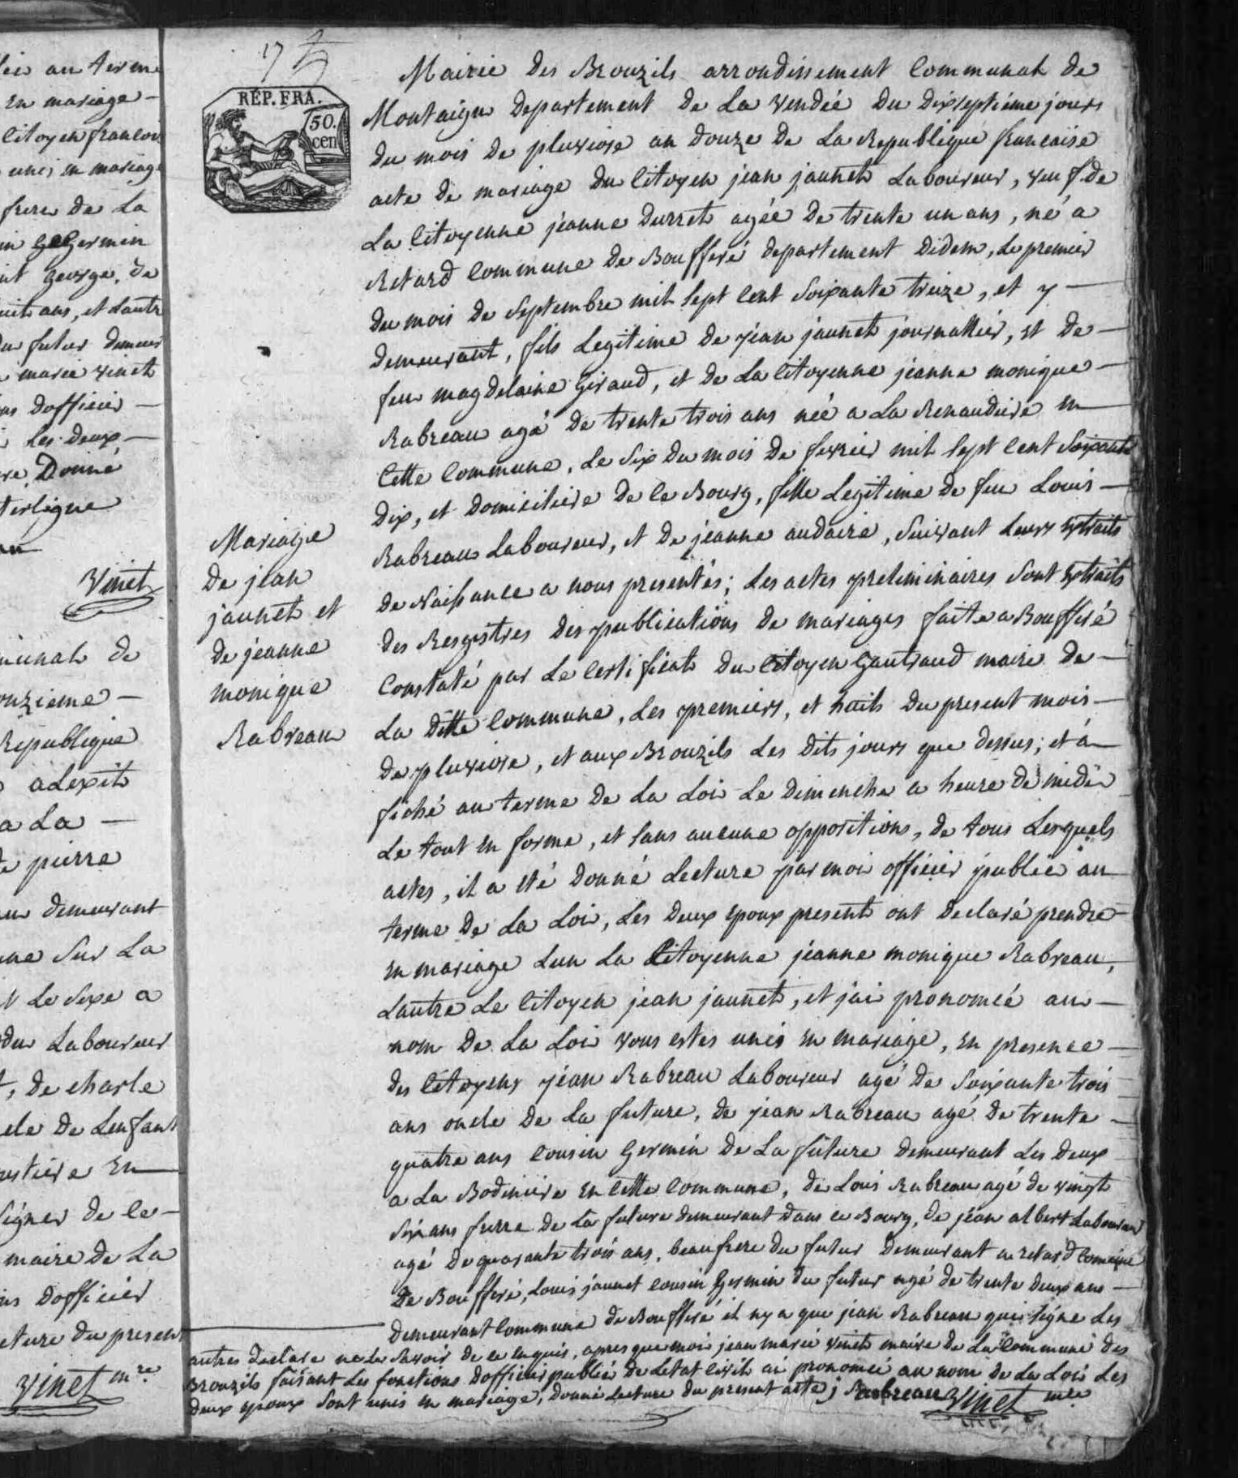 lié au terme
En mariage —
Citoyen francois
unis en mariage
frere de La
Germin
george, de
ans, et Lautre
du futur demeur
marie vinet
dofficier —
Les deux —
Donné
Vinet
munal de
onzieme —
Republique
a La —
pierre
demeurant
Sur La
Le Sixe a
du Laboureur
de charle
de Lenfant
En
Signer de ce —
maire de La
dofficier
lecture du present
Vinet m.re
17
REP. FRA.
50.
cen
Mariage
de jean
jaunet et
de jéanne
monique
Rabreau
Mairie des Brouzils arrondissement Communal de
Montaigu departement de La vendée du dixseptiéme jours
du mois de pluviose an douze de La Republique francaise
acte de mariage du Citoyen jean jaunet Laboureur, veuf de
La Citoyenne jéanne Durret agée de trente un ans, né a
Retard Commune de Boufferé departement didem, Le premier
du mois de Septembre mil Sept Cent Soixante treize, et y —
demeurant, fils Legitime de jéan jaunet journallier, et de —
feu magdelaine Giraud, et de La Citoyenne jéanne monique —
Rabreau agé de trente trois ans née a La Renaudiere en
Cette Commune, Le Six du mois de fevrier mil Sept Cent Soixante
Dix, et domiciliere de Ce Bourg, fille Legitime de feu Louis —
Rabreau Laboureur, et de jéanne audaire, Suivant Leurs Extraits
de Naissance a nous presentés; Les actes preliminaires Sont Extraits
des Resgistres des publications de mariages faite a Boufferé
Constaté par Le Certificat du Citoyen Gautraud maire de —
La ditte Commune, Les premiers, et huit du present mois —
de pluviose, et aux Brouzils Les dits jours que dessus; et á
fiché au terme de La Loi Le dimenche a heure de midi
Le tout en forme, et Sans aucune oppositions, de tous Lesquels
actes, il a été donné Lecture par moi officier publié au
terme de La Loi, Les deux Epoux present ont declaré prendre
En mariage Lun La Citoyenne jéanne monique Rabreau,
Lautre Le Citoyen jean jaunet, et jai pronomcé au —
nom de La Loi vous estes unis en mariage, En presence —
des Citoyens jéan Rabreau Laboureur agé de Soixante trois
ans oncle de La future, de jean Rabreau agé de trente —
quatre ans Cousin Germin de La future demeurant Les deux
a La Bodiniere en Cette Commune, de Louis Rabreau agé de vingt
Six ans frere de La future demeurant dans ce Bourg, de jéan albert Laboureur
agé de quarante trois ans, beau frere du futur demeurant a retard Commune
de Boufferé, Louis jaunet Cousin Germin du futur agé de trente deux ans —
demeurant Commune de Boufferé et ny a que jean Rabreau qui Signe Les
autres declare ne Le Savoir de ce Enquis, apres que moi jean marie vinet maire de La Commune des
Brouzils faisant Les fonctions dofficier publié de Letat Civil ai pronomcé au nom de La Loi Les
deux Epoux Sont unis en mariage, donné Lecture du present acte j Rabreau Vinet m.re